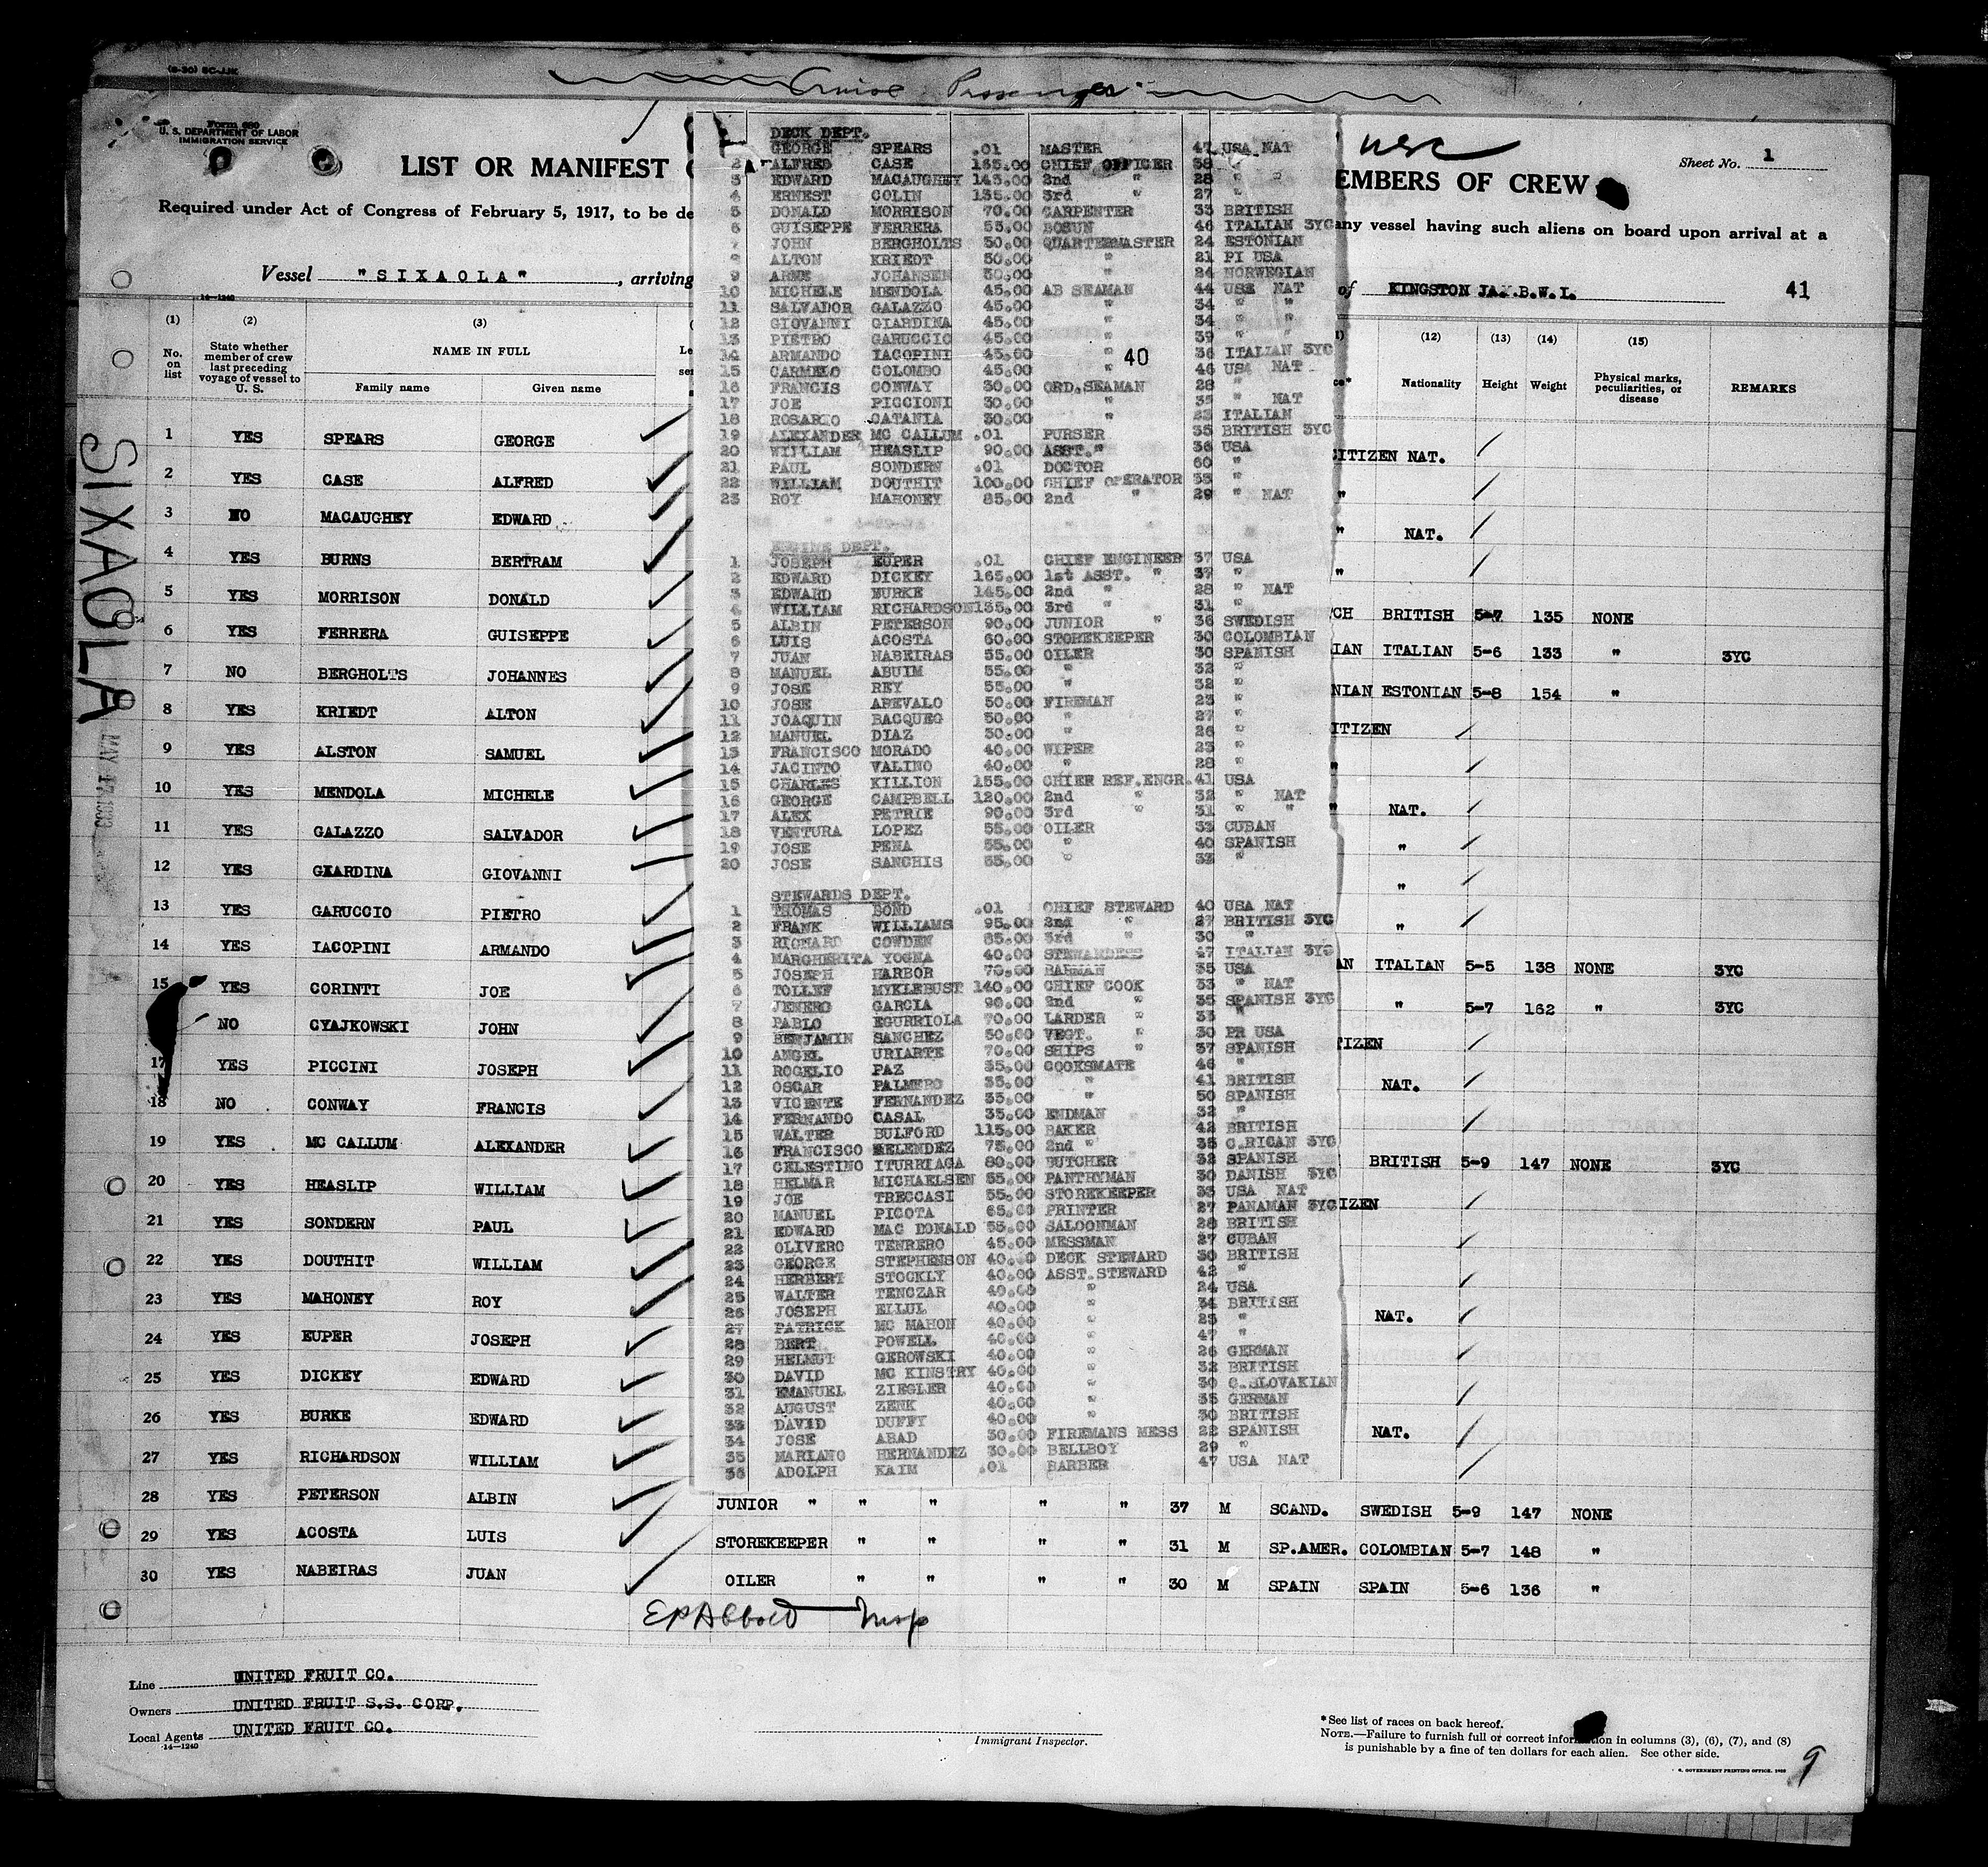 (8-30) SC-JJK
Cruise Passenger
Form 680
U. S. DEPARTMENT OF LABOR
IMMIGRATION SERVICE
LIST OR MANIFEST
EMBERS OF CREW
Sheet No. 1
Required under Act of Congress of February 5, 1917, to be de
any vessel having such aliens on board upon arrival at a
Vessel "SIXAOLA", arriving
of KINGSTON JA. B.W.I.
41
14—1240
(1) (2) (3) (12) (13) (14) (15)
No. on list
State whether member of crew last preceding voyage of vessel to U. S.
NAME IN FULL
Family name Given name
Nationality Height Weight Physical marks, peculiarities, or disease REMARKS
SIXAOLA
1 YES SPEARS GEORGE CITIZEN NAT.
2 YES CASE ALFRED "
3 NO MACAUGHEY EDWARD " NAT.
4 YES BURNS BERTRAM "
5 YES MORRISON DONALD CH BRITISH 5-7 135 NONE
6 YES FERRERA GUISEPPE IAN ITALIAN 5-6 133 " 3YC
7 NO BERGHOLTS JOHANNES NIAN ESTONIAN 5-8 154 "
8 YES KRIEDT ALTON ITIZEN
9 YES ALSTON SAMUEL "
10 YES MENDOLA MICHELE " NAT.
11 YES GALAZZO SALVADOR "
12 YES GIARDINA GIOVANNI "
13 YES GARUCCIO PIETRO "
14 YES IACOPINI ARMANDO AN ITALIAN 5-5 138 NONE 3YC
15 YES CORINTI JOE " 5-7 162 " 3YC
NO CYAJKOWSKI JOHN TIZEN
17 YES PICCINI JOSEPH NAT.
18 NO CONWAY FRANCIS
19 YES MC CALLUM ALEXANDER BRITISH 5-9 147 NONE 3YC
20 YES HEASLIP WILLIAM IZEN
21 YES SONDERN PAUL
22 YES DOUTHIT WILLIAM
23 YES MAHONEY ROY NAT.
24 YES EUPER JOSEPH
25 YES DICKEY EDWARD
26 YES BURKE EDWARD NAT.
27 YES RICHARDSON WILLIAM
28 YES PETERSON ALBIN JUNIOR " " " " " 37 M SCAND. SWEDISH 5-9 147 NONE
29 YES ACOSTA LUIS STOREKEEPER " " " " 31 M SP.AMER. COLOMBIAN 5-7 148 "
30 YES NABEIRAS JUAN OILER " " " " 30 M SPAIN SPAIN 5-6 136 "
DECK DEPT.
GEORGE SPEARS .01 MASTER 47 USA NAT
2 ALFRED CASE 165.00 CHIEF OFFICER 38 "
3 EDWARD MACAUGHEY 145.00 2nd " 28 " "
4 ERNEST COLIN 135.00 3rd " 27 "
5 DONALD MORRISON 70.00 CARPENTER 33 BRITISH
6 GUISEPPE FERRERA 55.00 BOSUN 46 ITALIAN 3YC
7 JOHN BERGHOLTS 50.00 QUARTERMASTER 24 ESTONIAN
8 ALTON KRIEDT 50.00 " 21 PI USA
9 ARNE JOHANSEN 50.00 " 24 NORWEGIAN
10 MICHELE MENDOLA 45.00 AB SEAMAN 44 USE NAT
11 SALVADOR GALAZZO 45.00 " 34 " "
12 GIOVANNI GIARDINA 45.00 " 34 " "
13 PIETRO GARUCCIO 45.00 " 39 " "
14 ARMANDO IACOPINI 45.00 " 40 36 ITALIAN 3YC
15 CARMELO COLOMBO 45.00 " 46 USA NAT
16 FRANCIS CONWAY 30.00 ORD.SEAMAN 28 "
17 JOE PICCIONI 30.00 " 35 " NAT
18 ROSARIO CATANIA 30.00 " 23 ITALIAN
19 ALEXANDER MC CALLUM .01 PURSER 35 BRITISH 3YC
20 WILLIAM HEASLIP 90.00 ASST." 36 USA
21 PAUL SONDERN .01 DOCTOR 60 "
22 WILLIAM DOUTHIT 100.00 CHIEF OPERATOR 35 "
23 ROY MAHONEY 85.00 2nd " 29 " NAT
ENGINE DEPT.
1 JOSEPH EUPER .01 CHIEF ENGINEER 37 USA
2 EDWARD DICKEY 165.00 1st ASST. " 37 "
3 EDWARD BURKE 145.00 2nd " 28 " NAT
4 WILLIAM RICHARDSON 135.00 3rd " 31 "
5 ALBIN PETERSON 90.00 JUNIOR " 36 SWEDISH
6 LUIS ACOSTA 60.00 STOREKEEPER 30 COLOMBIAN
7 JUAN NABEIRAS 55.00 OILER 30 SPANISH
8 MANUEL ABUIM 55.00 " 32 "
9 JOSE REY 55.00 " 32 "
10 JOSE AREVALO 50.00 FIREMAN 23 "
11 JOAQUIN BACQUEG 50.00 " 27 "
12 MANUEL DIAZ 50.00 " 26 "
13 FRANCISCO MORADO 40.00 WIPER 23 "
14 JACINTO VALINO 40.00 " 28 "
15 CHARLES KILLION 155.00 CHIEF REF.ENGR. 41 USA
16 GEORGE CAMPBELL 120.00 2nd " 32 " NAT
17 ALEX PETRIE 90.00 3rd " 31 " "
18 VENTURA LOPEZ 55.00 OILER 33 CUBAN
19 JOSE PENA 55.00 " 40 SPANISH
20 JOSE SANCHIS 55.00 " 33 "
STEWARDS DEPT.
1 THOMAS BOND .01 CHIEF STEWARD 40 USA NAT
2 FRANK WILLIAMS 95.00 2nd " 27 BRITISH 3YC
3 RICHARD COWDEN 85.00 3rd " 30 "
4 MARGHERITA YOGNA 40.00 STEWARDESS 47 ITALIAN 3YC
5 JOSEPH HARBOR 70.00 BARMAN 35 USA
6 TOLLEF MYKLEBUST 140.00 CHIEF COOK 33 " NAT
7 JENERO GARCIA 90.00 2nd " 35 SPANISH 3YC
8 PABLO EGURRIOLA 70.00 LARDER " 33 "
9 BENJAMIN SANCHEZ 50.00 VEGT. " 30 PR USA
10 ANGEL URIARTE 70.00 SHIPS " 37 SPANISH
11 ROGELIO PAZ 35.00 COOKSMATE 46 "
12 OSCAR PALMERO 35.00 " 41 BRITISH
13 VICENTE FERNANDEZ 35.00 " 50 SPANISH
14 FERNANDO CASAL 35.00 ENDMAN 32 "
15 WALTER BULFORD 115.00 BAKER 42 BRITISH
16 FRANCISCO MELENDEZ 75.00 2nd " 35 C.RICAN 3YC
17 CELESTINO ITURRIAGA 80.00 BUTCHER 32 SPANISH
18 HELMAR MICHAELSEN 55.00 PANTRYMAN 30 DANISH 3YC
19 JOE TRECCASI 55.00 STOREKEEPER 33 USA NAT
20 MANUEL PICOTA 65.00 PRINTER 27 PANAMAN 3YC
21 EDWARD MAC DONALD 55.00 SALOONMAN 28 BRITISH
22 OLIVERO TENRERO 45.00 MESSMAN 27 CUBAN
23 GEORGE STEPHENSON 40.00 DECK STEWARD 30 BRITISH
24 HERBERT STOCKLY 40.00 ASST.STEWARD 42 "
25 WALTER TENCZAR 40.00 " 24 USA
26 JOSEPH ELLUL 40.00 " 34 BRITISH
27 PATRICK MC MAHON 40.00 " 25 "
28 BERT POWELL 40.00 " 47 "
29 HELMUT GEROWSKI 40.00 " 26 GERMAN
30 DAVID MC KINSTRY 40.00 " 32 BRITISH
31 EMANUEL ZIEGLER 40.00 " 30 C.SLOVAKIAN
32 AUGUST ZENK 40.00 " 35 GERMAN
33 DAVID DUFFY 40.00 " 30 BRITISH
34 JOSE ABAD 30.00 FIREMANS MESS 22 SPANISH
35 MARIANO HERNANDEZ 30.00 BELLBOY 29 "
36 ADOLPH KAIM .01 BARBER 47 USA NAT
Line UNITED FRUIT CO.
Owners UNITED FRUIT S.S. CORP.
Local Agents UNITED FRUIT CO.
14—1240
Immigrant Inspector.
*See list of races on back hereof.
NOTE.—Failure to furnish full or correct information in columns (3), (6), (7), and (8)
is punishable by a fine of ten dollars for each alien. See other side.
9